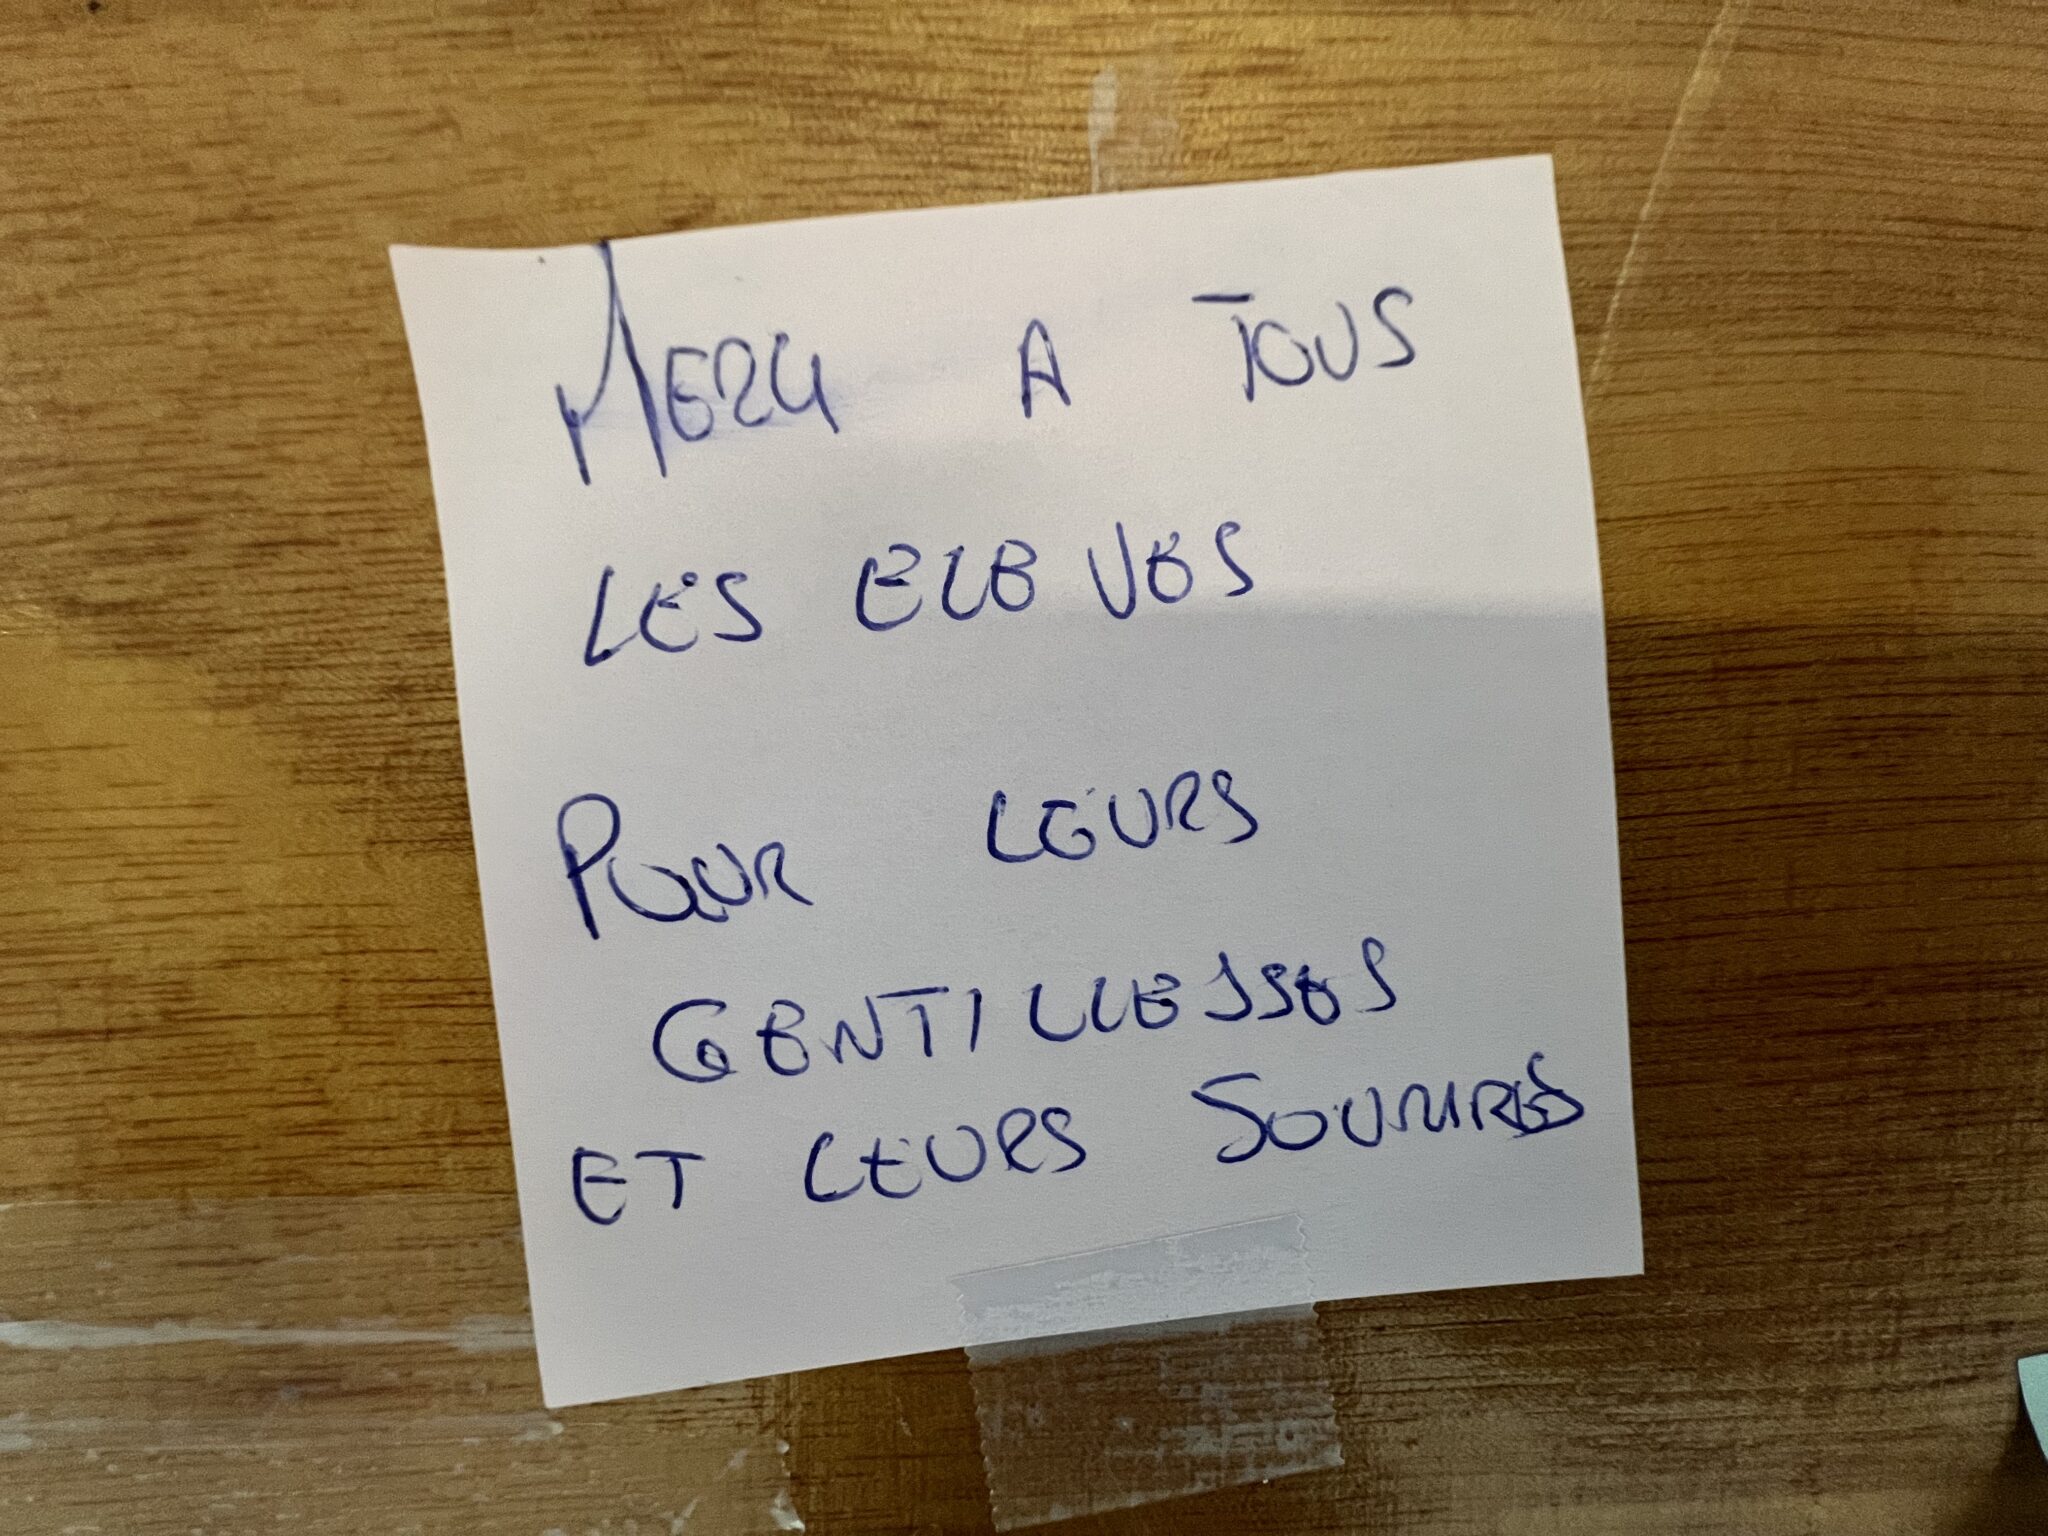 MERCI A TOUS
LES ELEVES
POUR LEURS
GENTILLESSES
ET LEURS SOURIRES